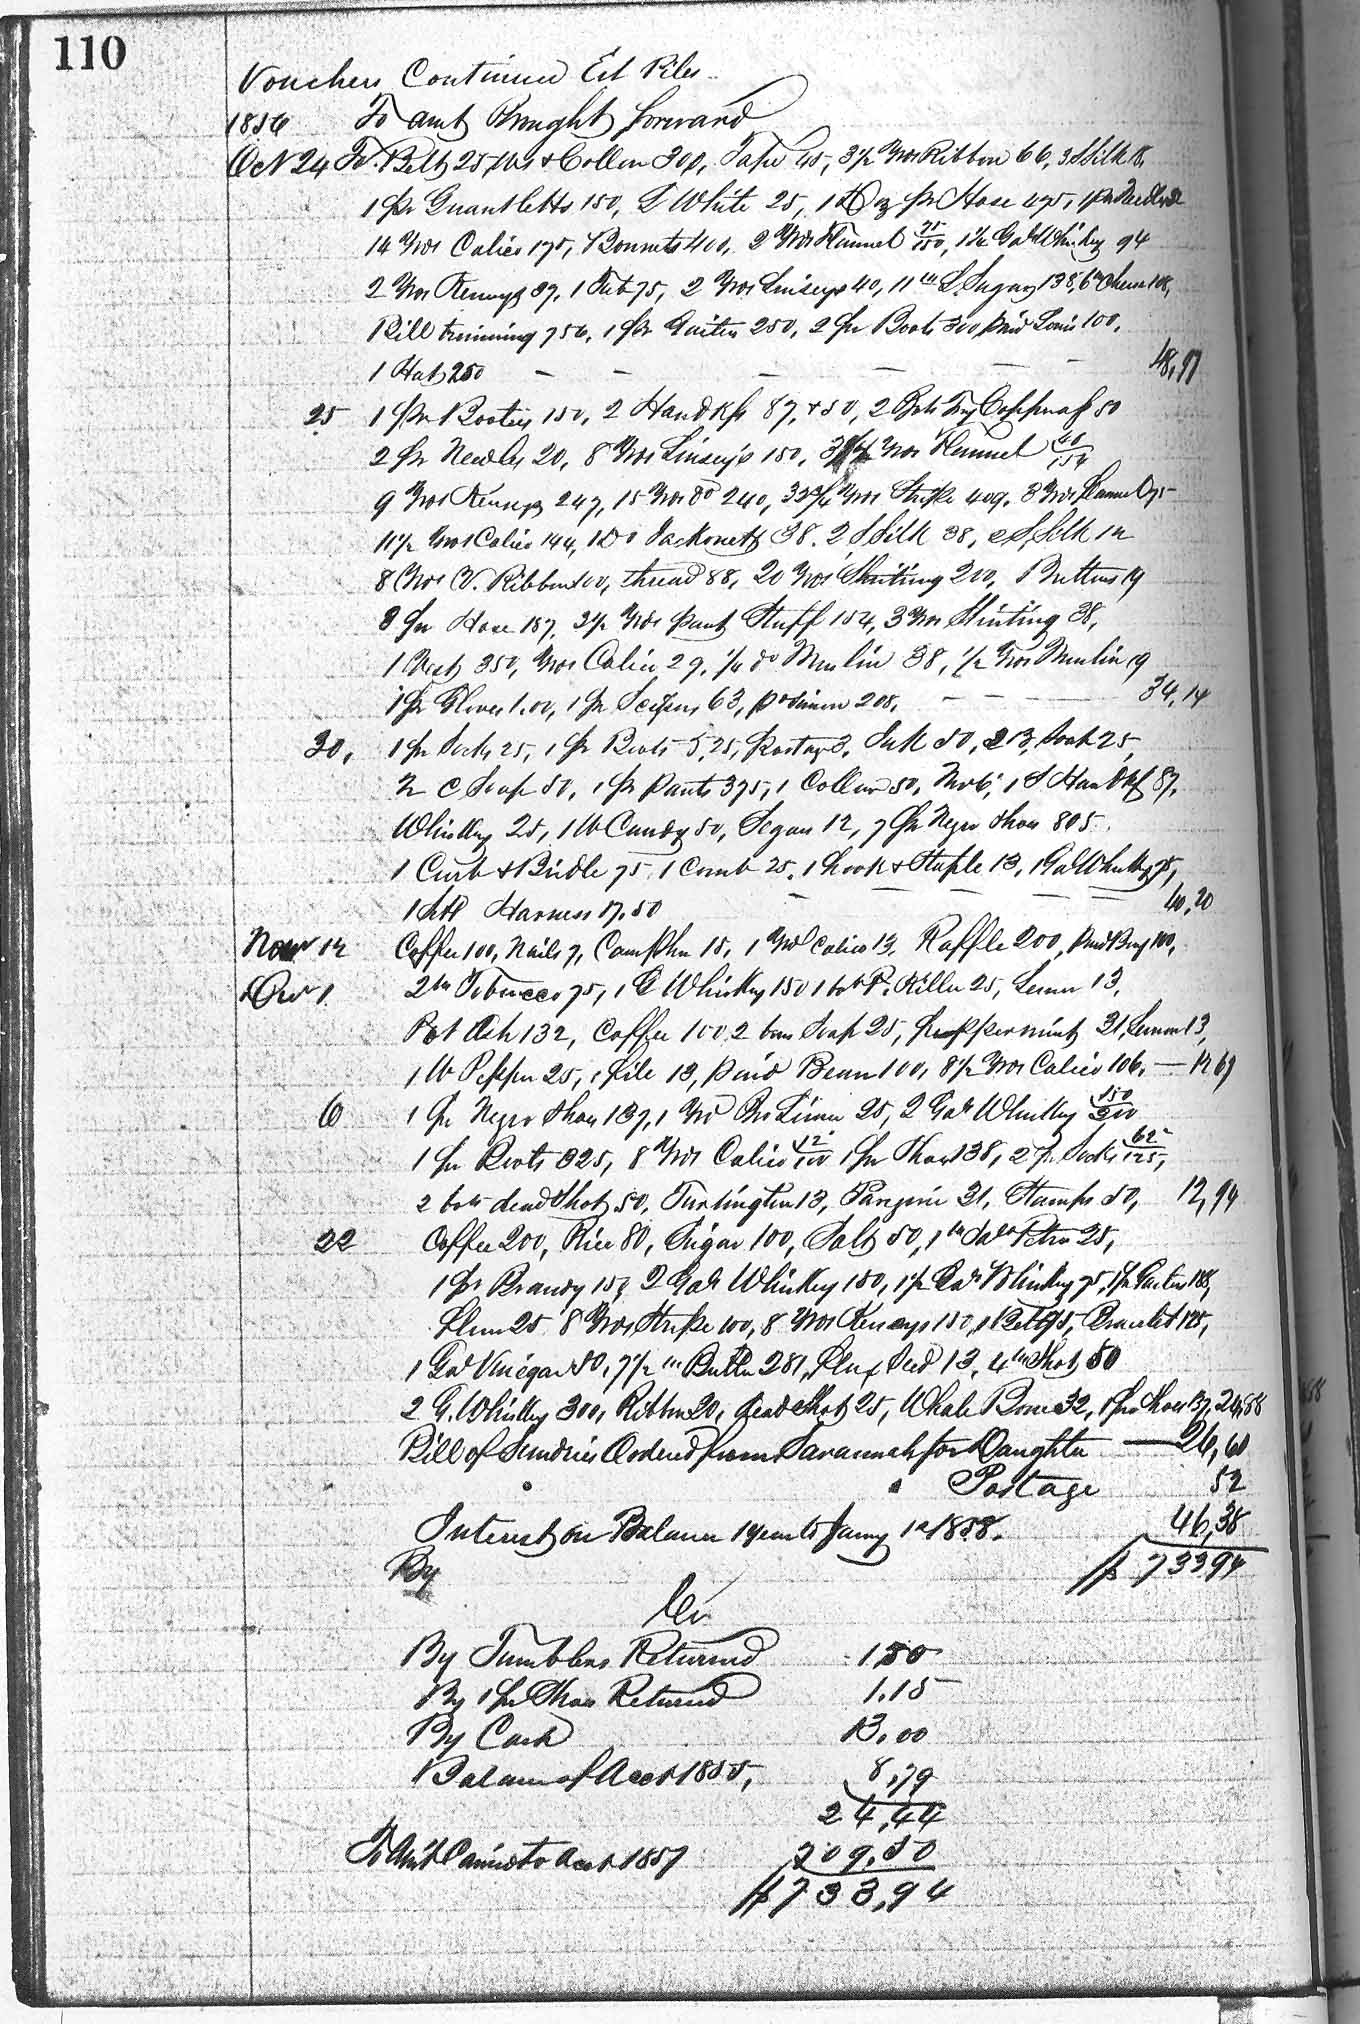 110
Vouchers Continued Est Riles
1856 To amt Brought forward
Oct 24 To Belt 25, & Collar 300, Tape 45, 3½ Yds Ribbon 66, 3 S Silk 18,
1 pr Guantletts 150, L White 25, 1 Doz pr Hose 475, 1 pr Needles
14 Yds Calico 175, Bonnets 400, 2 Yds Flannel 75/150, 1¼ Gal Whiskey 94
2 Yds Kerseys 37, 1 Tub 75, 2 Yds Linseys 40, 11 lb L. Sugar 138, 6 lb Cheese 108,
Bill trimming 756, 1 pr Gaiters 250, 2 pr Boots 300 paid Louis 100,
1 Hat 250 - - - - - - 48,97
25 1 pr Booties 150, 2 Handkfs 87, + 50, 2 Copperas 50
2 pr Needles 20, 8 Yds Linseys 150, Yds Flannel 40/154
9 Yds Kerseys 247, 15 Yds do 240, 32¾ Yds Stripe 409, 3 Yds Flannel 75
11½ Yds Calico 144, 1 Do Jackonett 38, 2 S Silk 38, 2 S, Silk 12
8 Yds V. Ribbon 100, thread 88, 20 Yds Shirting 200, Buttons 19
8 pr Hose 187, 2½ Yds pant Stuff 154, 3 Yds Shirting 38,
1 Vest 350, Yds Calico 29, ¼ do Muslin 38, ½ Yds Muslin 19
1 pr Gloves 1.00, 1 pr Scissors 63, pd Simon 208, - - - - 34,14
30, 1 pr Socks 25, 1 pr Boots 5.25, postage 3, Salt 50, Soap 25,
2 C Soap 50, 1 pr pants 375, 1 Collar 50, 1 S Handkf 87,
Whiskey 25, 1 lb Candy 50, Segars 12, 7 pr Negro Shoes 805.
1 Curb & Bridle 75, 1 Comb 25, 1 hook & Staple 13, 1 Gal Whiskey 75,
1 Sett Harness 17.50 - - - - 40,20
Nov 12 Coffee 100, Nails 7, Camphor 15, 1 Yd Calico 13, Raffle 200, paid 100,
Dec 1 2 lb Tobacco 75, 1 G Whiskey 150 1 bot P. Killer 25, Lemon 13,
Pot Ash 132, Coffee 100, 2 bars Soap 25, peppermint 31, Lemon 13,
1 lb Pepper 25, 1 File 13, paid Bean 100, 8½ Yds Calico 106, — 12 69
6 1 pr Negro Shoes 137, 1 Yd Bro Linen 25, 2 Gals Whiskey 150/300
1 pr Boots 325, 8 Yds Calico 12/100 1 pr Shoes 138, 2 pr Socks 62/125,
2 bots dead Shot 50, Turlington 13, Paregoric 31, Stamps 50, 12,94
22 Coffee 200, Rice 80, Sugar 100, Salt 50, 1 lb Salt Petre 25,
1 Gr Brandy 150, 2 Gals Whiskey 150, 1½ Gals Whiskey 75, 1 pr Gaiters 188,
Plum 25 8 Yds Stripe 100, 8 Yds Kerseys 150, 1 Belt 75, Bracelet 125,
1 Gal Vinegar 50, 7½ lb Butter 281, Flax Seed 13, 4 lb Shot 50
2 G. Whiskey 300, Ribbon 20, dead Shot 25, Whale Bone 32, 1 pr Shoes 137, 24,58
Bill of Sundries Ordered from Savannah for Daughter — 26,60
Postage 52
Interest on Balance 1 year to Jany 1st 1858. 46,38
By $733 94
Cr
By Tumblers Returned 1.50
By 1 pr Shoes Returned 1.15
By Cash 13.00
Balance of Acct 1855, 8,79
24,44
To Amt Carried to Acct 1857 709.50
$733,94